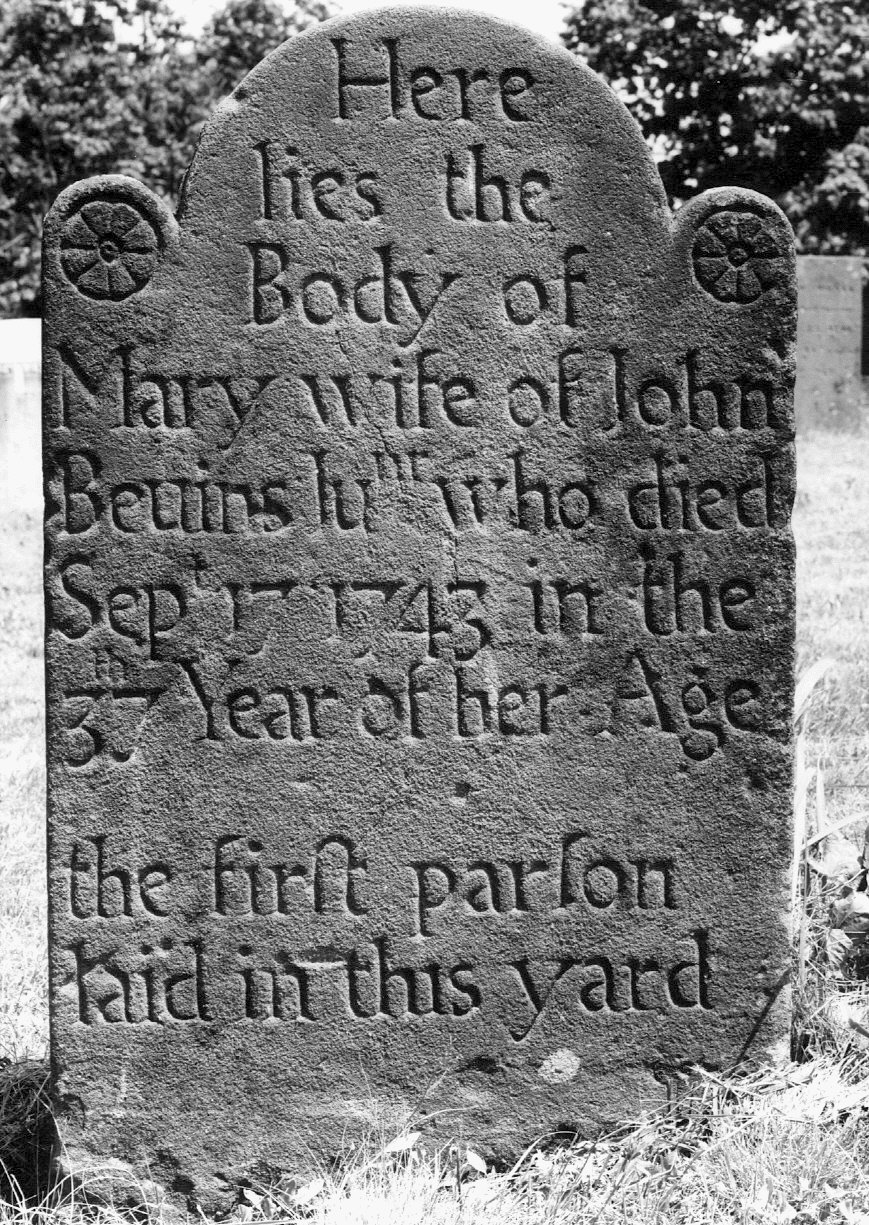 Here
lies the
Body of
Mary wife of John
Beuins Iuⁿʳ who died
Sepᵗ 17 1743 in the
37ᵗʰ Year of her Age
the firſt parſon
laid in this yard